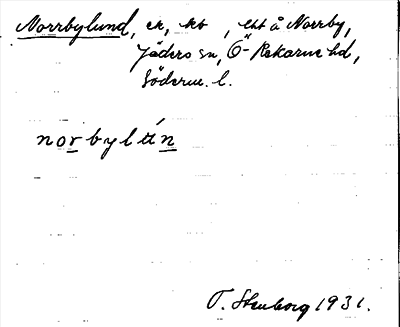 Norrbylund, er, kt , lht å Norrby,
Jäders sn, Ö-Rekarne hd,
Söderm. l.
norbylún
T. Stenborg 1931.